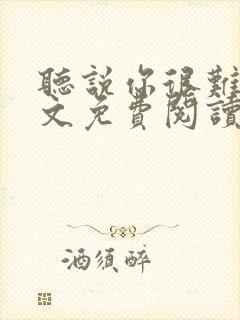 聽說你很難
文免費閱讀
酒須醉